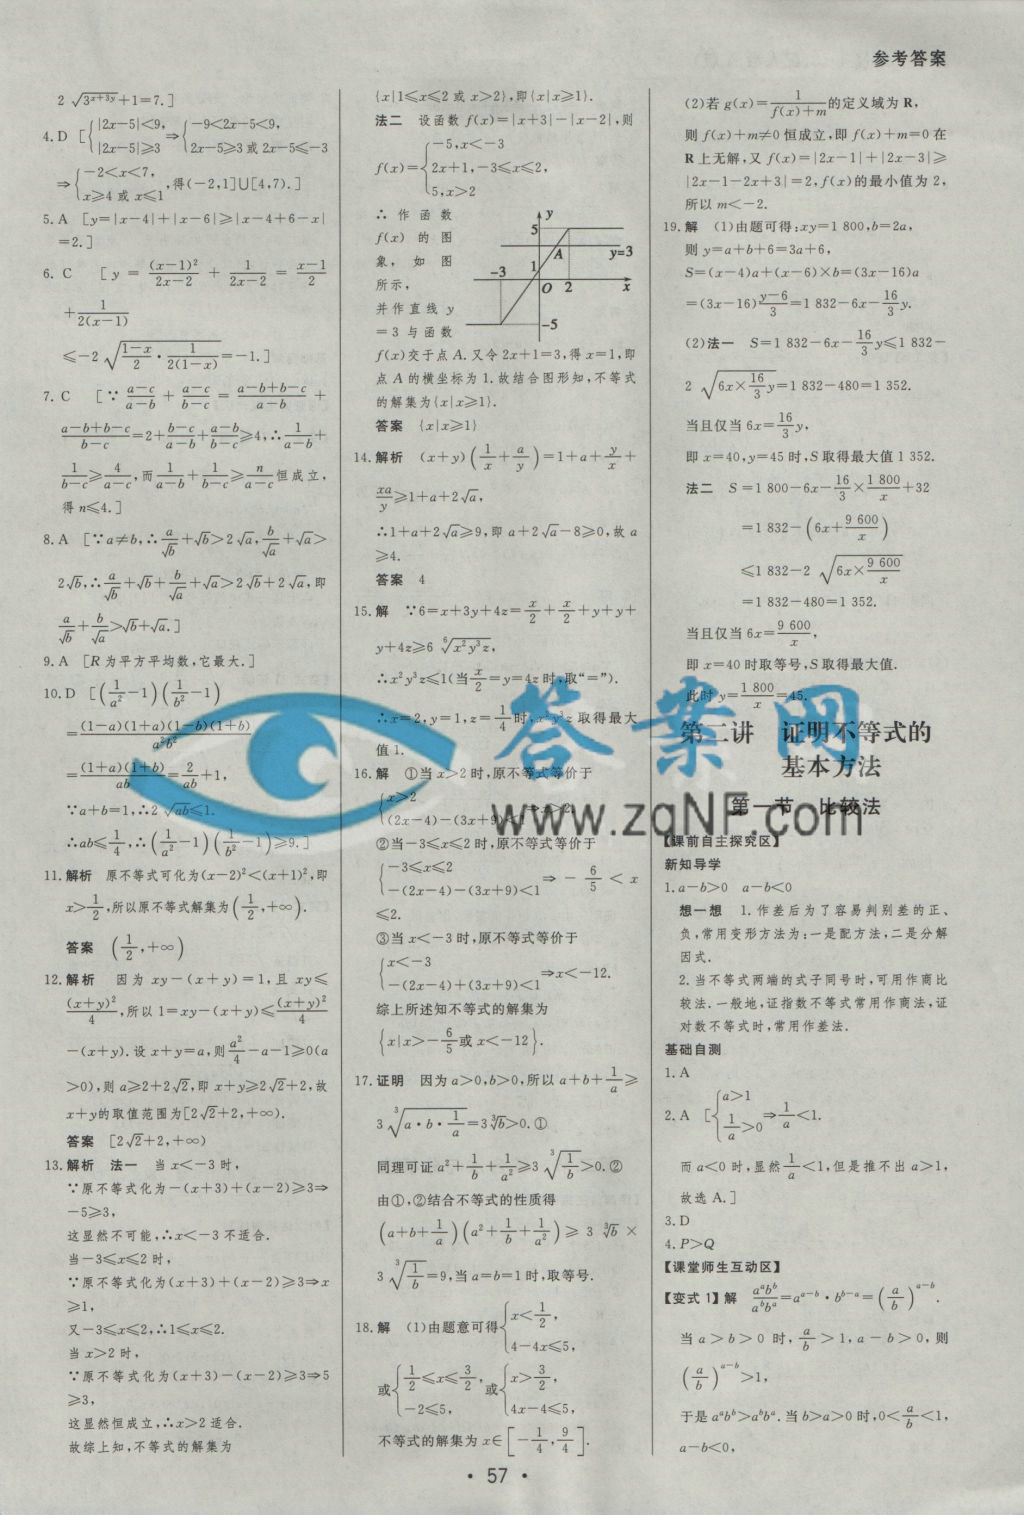 参考答案
2 √(3^(x+3y))+1=7.]
4.D [{|2x-5|<9, |2x-5|≥3 ⇒{-9<2x-5<9, 2x-5≥3或2x-5≤-3
⇒{-2<x<7, x≥4或x≤1 ,得(-2,1]∪[4,7).]
5.A [y=|x-4|+|x-6|≥|x-4+6-x|
=2.]
6.C [y=(x-1)²/(2x-2)+1/(2x-2)=(x-1)/2
+1/(2(x-1))
≤-2√((1-x)/2·1/(2(1-x)))=-1.]
7.C [∵(a-c)/(a-b)+(a-c)/(b-c)=(a-b+b-c)/(a-b)+
(a-b+b-c)/(b-c)=2+(b-c)/(a-b)+(a-b)/(b-c)≥4,∴1/(a-b)+
1/(b-c)≥4/(a-c),而1/(a-b)+1/(b-c)≥n/(a-c)恒成立,
得n≤4.]
8.A [∵a≠b,∴a/√b+√b>2√a,b/√a+√a>
2√b,∴a/√b+√b+b/√a+√a>2√b+2√a,即
a/√b+b/√a>√b+√a.]
9.A [R为平方平均数,它最大.]
10.D [(1/a²-1)(1/b²-1)
=(1-a)(1+a)(1-b)(1+b)/a²b²
=(1+a)(1+b)/ab=2/ab+1,
∵a+b=1,∴2√ab≤1.
∴ab≤1/4,∴(1/a²-1)(1/b²-1)≥9.]
11.解析 原不等式可化为(x-2)²<(x+1)²,即
x>1/2,所以原不等式解集为(1/2,+∞).
答案 (1/2,+∞)
12.解析 因为xy-(x+y)=1,且xy≤
(x+y)²/4,所以1=xy-(x+y)≤(x+y)²/4
-(x+y).设x+y=a,则a²/4-a-1≥0(a
>0),则a≥2+2√2,即x+y≥2√2+2,故
x+y的取值范围为[2√2+2,+∞).
答案 [2√2+2,+∞)
13.解析 法一 当x<-3时,
∵原不等式化为-(x+3)+(x-2)≥3⇒
-5≥3,
这显然不可能,∴x<-3不适合.
当-3≤x≤2时,
∵原不等式化为(x+3)+(x-2)≥3⇒x
≥1,
又-3≤x≤2,∴1≤x≤2.
当x>2时,
∵原不等式化为(x+3)-(x-2)≥3⇒5
≥3,
这显然恒成立,∴x>2适合.
故综上知,不等式的解集为
{x|1≤x≤2或x>2},即{x|x≥1}.
法二 设函数f(x)=|x+3|-|x-2|,则
f(x)={-5,x<-3
2x+1,-3≤x≤2,
5,x>2
∴作函数
f(x)的图
象,如图
所示,
并作直线y
=3与函数
y
5
A
y=3
-3
1
O 2 x
-5
f(x)交于点A.又令2x+1=3,得x=1,即
点A的横坐标为1.故结合图形知,不等式
的解集为{x|x≥1}.
答案 {x|x≥1}
14.解析 (x+y)(1/x+a/y)=1+a+y/x+
xa/y≥1+a+2√a,
∴1+a+2√a≥9,即a+2√a-8≥0,故a
≥4.
答案 4
15.解 ∵6=x+3y+4z=x/2+x/2+y+y+
y+4z≥6 ⁶√(x²y³z),
∴x²y³z≤1(当x/2=y=4z时,取“=”).
∴x=2,y=1,z=1/4时,x²y³z取得最大
值1.
16.解 ①当x>2时,原不等式等价于
{x>2 (2x-4)-(3x+9)<1 ⇒x>2.
②当-3≤x≤2时,原不等式等价于
{-3≤x≤2 -(2x-4)-(3x+9)<1 ⇒-6/5<x
≤2.
③当x<-3时,原不等式等价于
{x<-3 -(2x-4)+(3x+9)<1 ⇒x<-12.
综上所述知不等式的解集为
{x|x>-6/5或x<-12}.
17.证明 因为a>0,b>0,所以a+b+1/a≥
3 ³√(a·b·1/a)=3 ³√b>0.①
同理可证a²+1/b+1/a²≥3 ³√(1/b)>0.②
由①,②结合不等式的性质得
(a+b+1/a)(a²+1/b+1/a²)≥3 ³√b×
3 ³√(1/b)=9,当a=b=1时,取等号.
18.解 (1)由题意可得{x<1/2, 4-4x≤5,
或{1/2≤x≤3/2, -2≤5, 或{x>3/2, 4x-4≤5,
不等式的解集为x∈[-1/4,9/4].
(2)若g(x)=1/(f(x)+m)的定义域为R,
则f(x)+m≠0恒成立,即f(x)+m=0在
R上无解,又f(x)=|2x-1|+|2x-3|≥
|2x-1-2x+3|=2,f(x)的最小值为2,
所以m<-2.
19.解 (1)由题可得:xy=1 800,b=2a,
则y=a+b+6=3a+6,
S=(x-4)a+(x-6)×b=(3x-16)a
=(3x-16)(y-6)/3=1 832-6x-16/3 y.
(2)法一 S=1 832-6x-16/3 y≤1 832-
2√(6x×16/3 y)=1 832-480=1 352.
当且仅当6x=16/3 y,
即x=40,y=45时,S取得最大值1 352.
法二 S=1 800-6x-16/3×1 800/x+32
=1 832-(6x+9 600/x)
≤1 832-2√(6x×9 600/x)
=1 832-480=1 352.
当且仅当6x=9 600/x,
即x=40时取等号,S取得最大值.
此时y=1 800/x=45.
第二讲 证明不等式的
基本方法
第一节 比较法
【课前自主探究区】
新知导学
1.a-b>0 a-b<0
想一想 1.作差后为了容易判别差的正、
负,常用变形方法为:一是配方法,二是分解
因式.
2.当不等式两端的式子同号时,可用作商比
较法.一般地,证指数不等式常用作商法,证
对数不等式时,常用作差法.
基础自测
1.A
2.A [{a>1 1/a>0 ⇒1/a<1.
而a<0时,显然1/a<1,但是推不出a>1,
故选A.]
3.D
4.P>Q
【课堂师生互动区】
【变式1】解 a^a b^b/(a^b b^a)=a^(a-b)·b^(b-a)=(a/b)^(a-b).
当a>b>0时,a/b>1,a-b>0,则
(a/b)^(a-b)>1,
于是a^a b^b>a^b b^a.当b>a>0时,0<a/b<1,
a-b<0,
答案网
www.zqNF.com
• 57 •